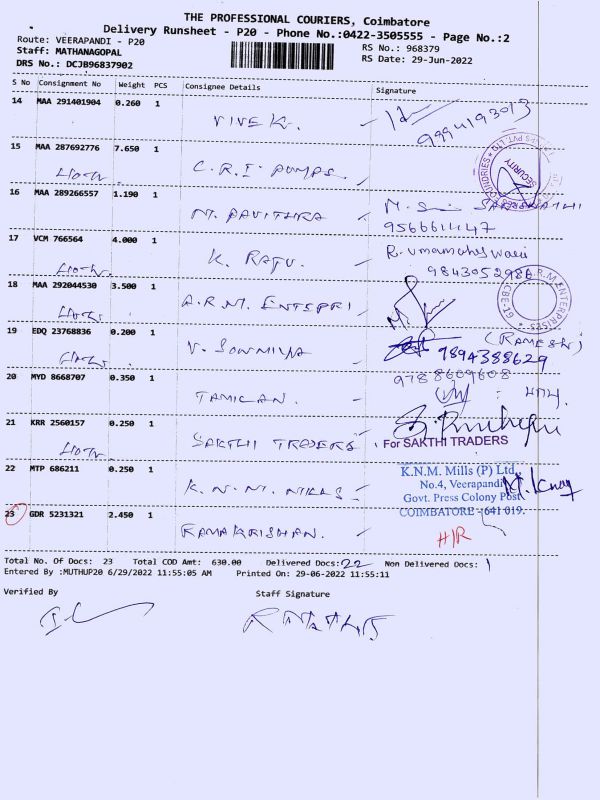 THE PROFESSIONAL COURIERS, Coimbatore
Delivery Runsheet - P20 - Phone No.:0422-3505555 - Page No.:2
Route: VEERAPANDI - P20
RS No.: 968379
Staff: MATHANAGOPAL
RS Date: 29-Jun-2022
DRS No.: DCJB96837902
S No Consignment No Weight PCS Consignee Details Signature
14 MAA 291401904 0.260 1
VIVEK.
9994193013
15 MAA 287692776 7.650 1
C.R.I PUMPS.
SECURITY
16 MAA 289266557 1.190 1
M. PAVITHRA
9566611147
17 VCM 766564 4.000 1
K. RAJU.
R. Umamaheswari
9843052986
18 MAA 292044530 3.500 1
A.R.M. ENTEPRI
A.R.M. ENTERPRISES
CBE-19
19 EDQ 23768836 0.200 1
V. SOWMIYA
(RAMESH)
9894388629
20 MYD 8668707 0.350 1
9788609608
TAMILAN.
21 KRR 2560157 0.250 1
SAKTHI TRADERS
For SAKTHI TRADERS
22 MTP 686211 0.250 1
K.N.M. MILLS
K.N.M. Mills (P) Ltd.,
No.4, Veerapandi
Govt. Press Colony Post
COIMBATORE - 641 019.
23 GDR 5231321 2.450 1
RAMAKRISHAN.
H/R
Total No. Of Docs: 23 Total COD Amt: 630.00 Delivered Docs: 22 Non Delivered Docs: 1
Entered By :MUTHUP20 6/29/2022 11:55:05 AM Printed On: 29-06-2022 11:55:11
Verified By Staff Signature